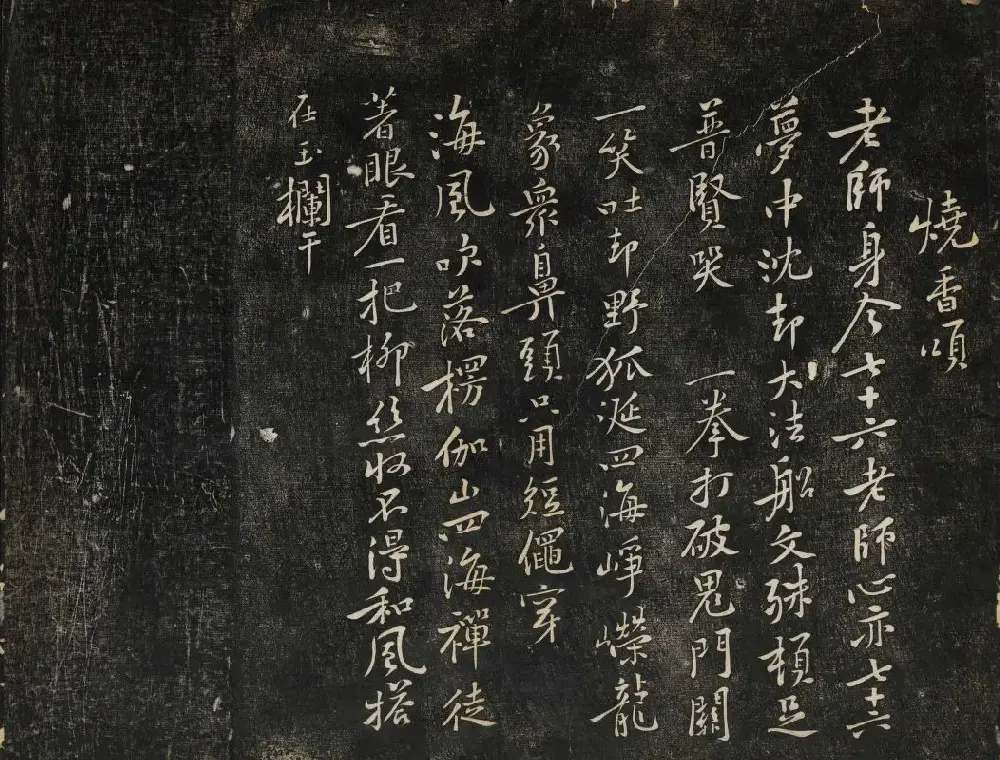 燒香頌
老師身今七十六老師心亦七十六
夢中沈却大法船文殊頓足
普賢哭 一拳打破鬼門關
一笑吐却野狐涎四海崢嶸龍
象衆鼻頭只用短繩穿
海風吹落楞伽山四海禪徒
著眼看一把柳絲收不得和風搭
在玉欄干